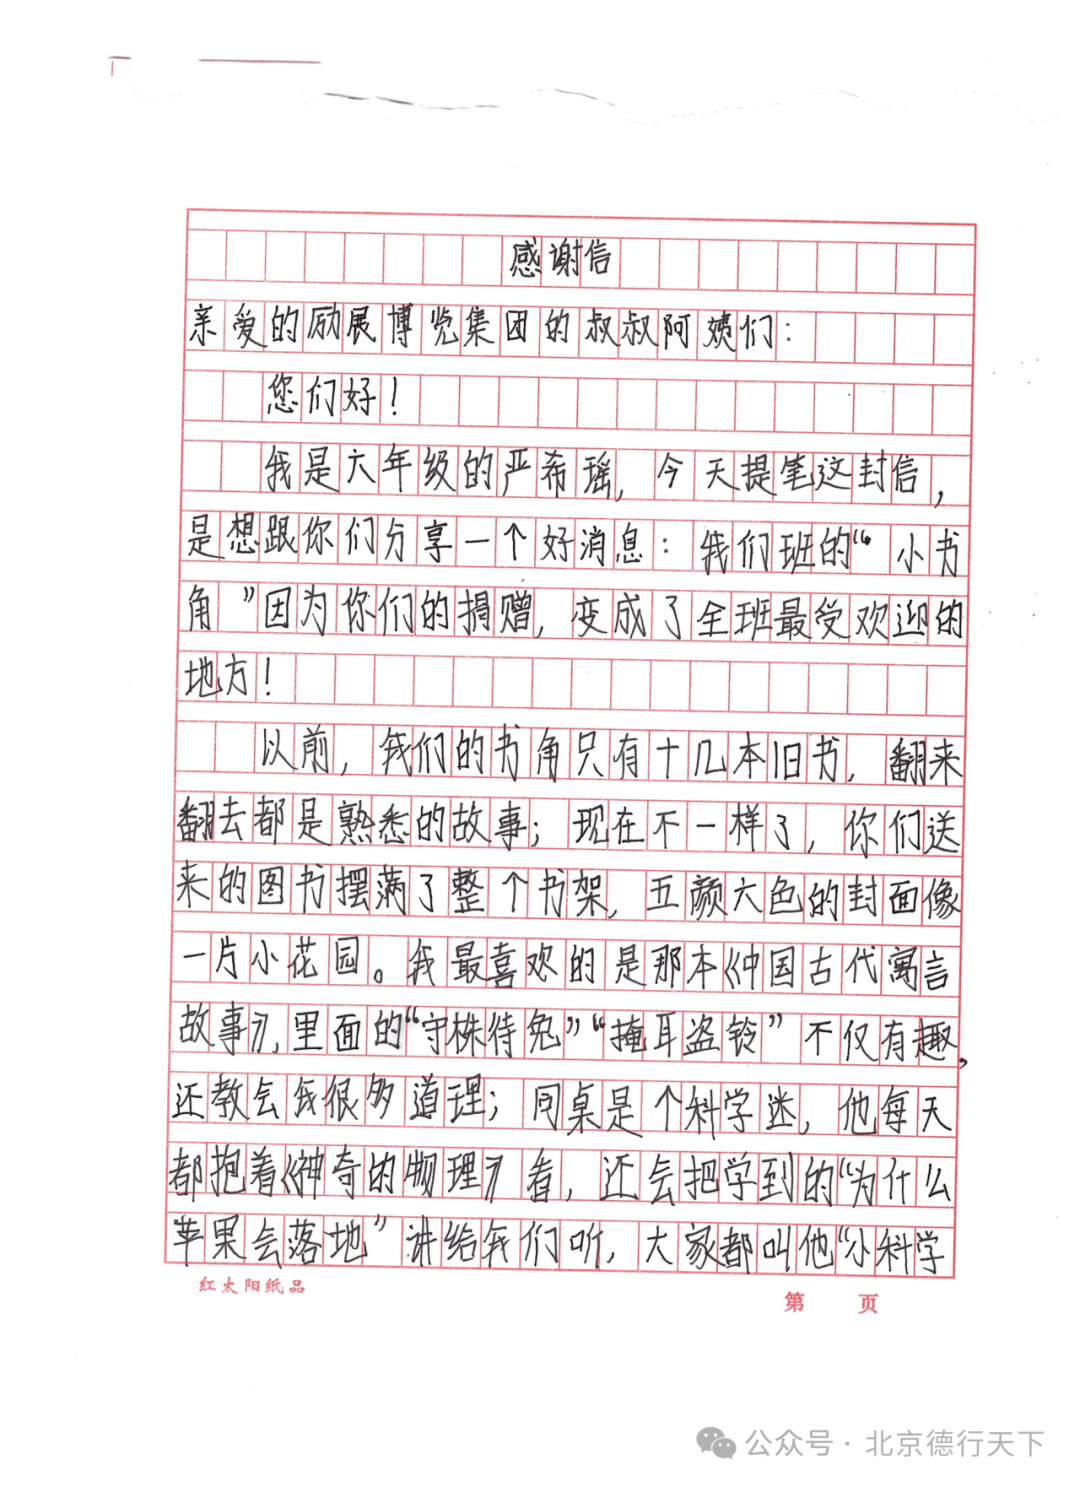 感谢信
亲爱的励展博览集团的叔叔阿姨们：
您们好！
我是六年级的严希瑶，今天提笔这封信，
是想跟你们分享一个好消息：我们班的“小书
角”因为你们的捐赠，变成了全班最受欢迎的
地方！
以前，我们的书角只有十几本旧书，翻来
翻去都是熟悉的故事；现在不一样了，你们送
来的图书摆满了整个书架，五颜六色的封面像
一片小花园。我最喜欢的是那本《中国古代寓言
故事》，里面的“守株待兔”“掩耳盗铃”不仅有趣，
还教会我很多道理；同桌是个科学迷，他每天
都抱着《神奇的物理》看，还会把学到的“为什么
苹果会落地”讲给我们听，大家都叫他“小科学
红太阳纸品
第 页
公众号·北京德行天下